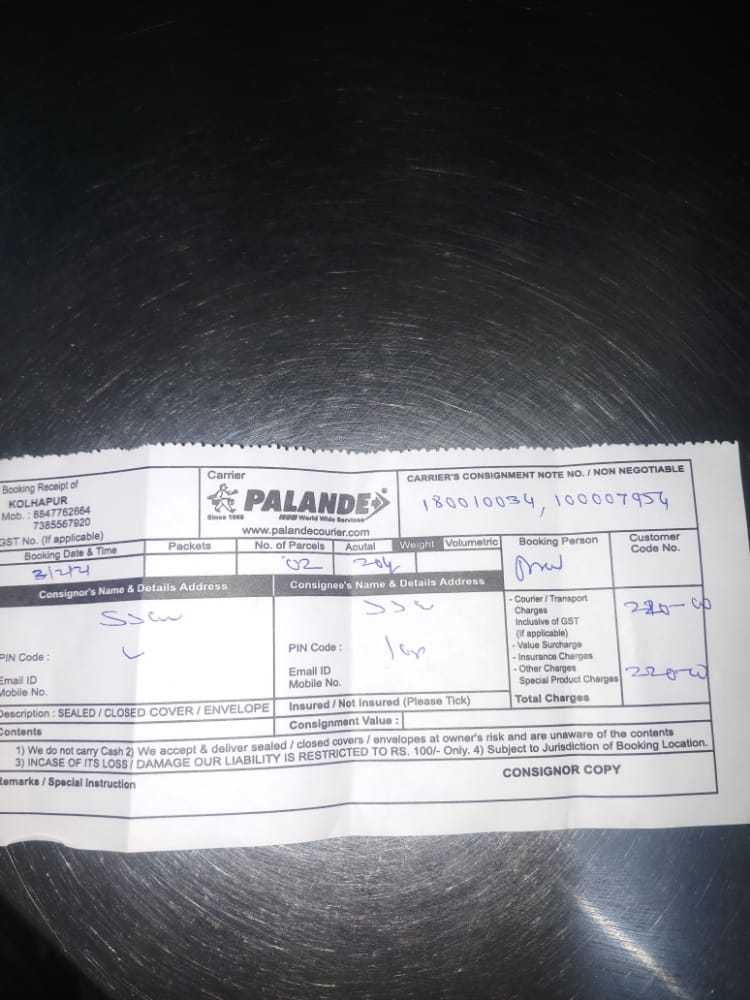 Booking Receipt of
KOLHAPUR
Mob. : 8847762664
7385567920
GST No. (If applicable)
Carrier
PALANDE
Since 1968 World Wide Services
www.palandecourier.com
CARRIER'S CONSIGNMENT NOTE NO. / NON NEGOTIABLE
180010034, 100007954
Booking Date & Time
Packets
No. of Parcels
02
Acutal Weight Volumetric
Booking Person
Customer
Code No.
Consignor's Name & Details Address
PIN Code :
Email ID
Mobile No.
Consignee's Name & Details Address
PIN Code :
Email ID
Mobile No.
- Courier / Transport
Charges
Inclusive of GST
(If applicable)
- Value Surcharge
- Insurance Charges
- Other Charges
Special Product Charges
Total Charges
Description : SEALED / CLOSED COVER / ENVELOPE
Insured / Not Insured (Please Tick)
Contents
Consignment Value :
1) We do not carry Cash 2) We accept & deliver sealed / closed covers / envelopes at owner's risk and are unaware of the contents
3) INCASE OF ITS LOSS / DAMAGE OUR LIABILITY IS RESTRICTED TO RS. 100/- Only. 4) Subject to Jurisdiction of Booking Location.
Remarks / Special Instruction
CONSIGNOR COPY